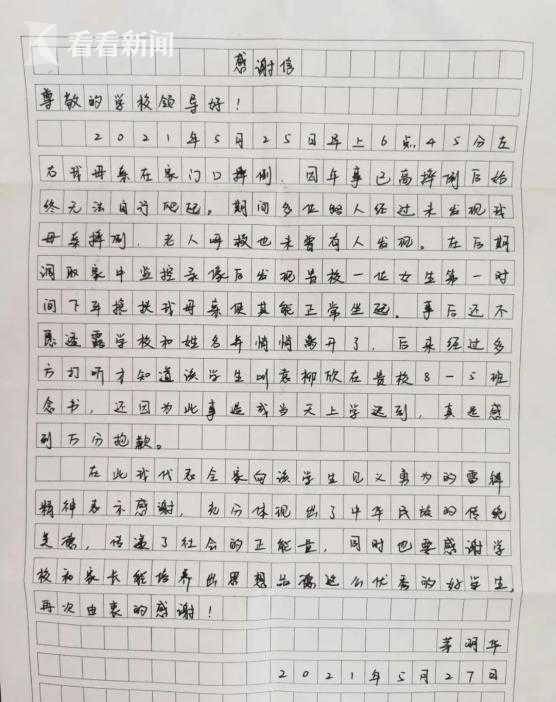 看看新闻
感谢信
尊敬的学校领导好！
2021年5月25日早上6点45分左
右我母亲在家门口摔倒，因年事已高摔倒后始
终无法自行爬起。期间多位路人经过未发现我
母亲摔倒，老人再极也未曾有人发现。在后期
调取家中监控录像后发现贵校一位女生第一时
间下车搀扶我母亲使其能正常坐起。事后还不
愿透露学校和姓名并悄悄离开了，后来经过多
方打听才知道该学生叫袁柳欣在贵校8-5班
念书，还因为此事造成当天上学迟到，真是感
到万分抱歉。
在此我代表全家向该学生见义勇为的雷锋
精神表示感谢，充分体现出了中华民族的传统
美德，传递了社会的正能量，同时也要感谢学
校和家长能培养出思想品德这么优秀的好学生，
再次由衷的感谢！
华
2021年5月27日